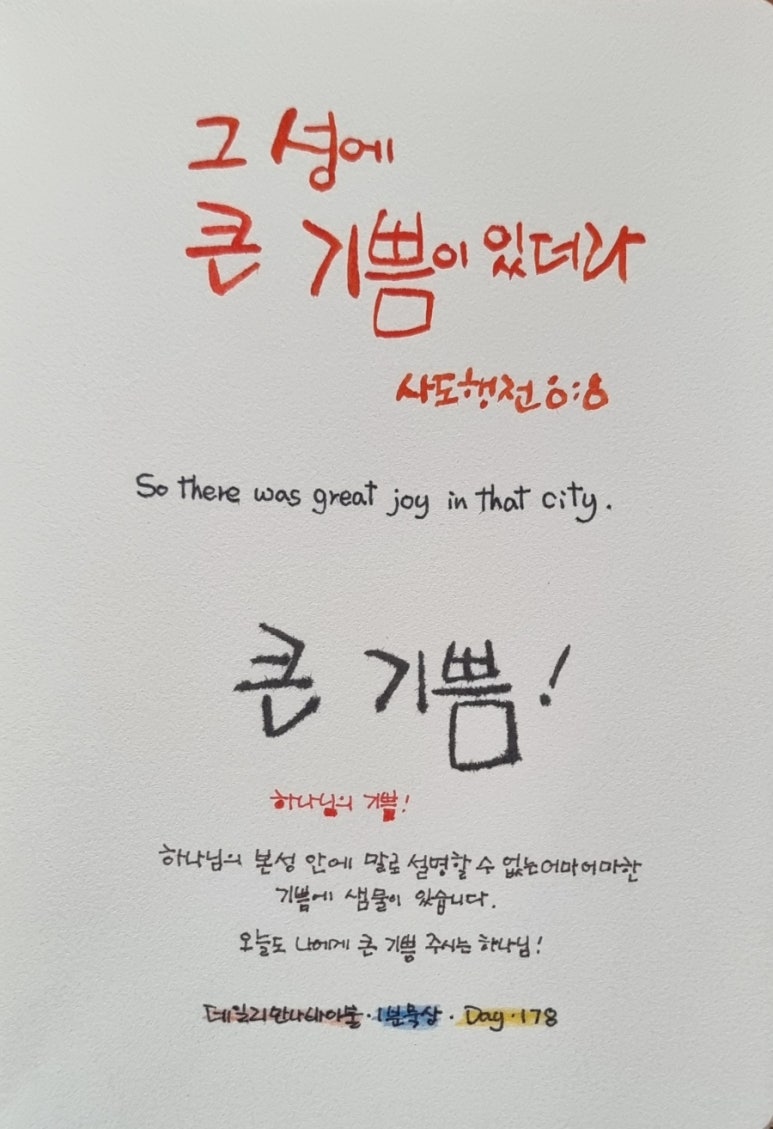 그 성에
큰 기쁨이 있더라
사도행전 8:8
So there was great joy in that city.
큰 기쁨!
하나님의 기쁨!
하나님의 본성 안에 말로 설명할 수 없는 어마어마한
기쁨에 샘물이 있습니다.
오늘도 나에게 큰 기쁨 주시는 하나님!
데일리만나바이블·1분묵상·Day·178